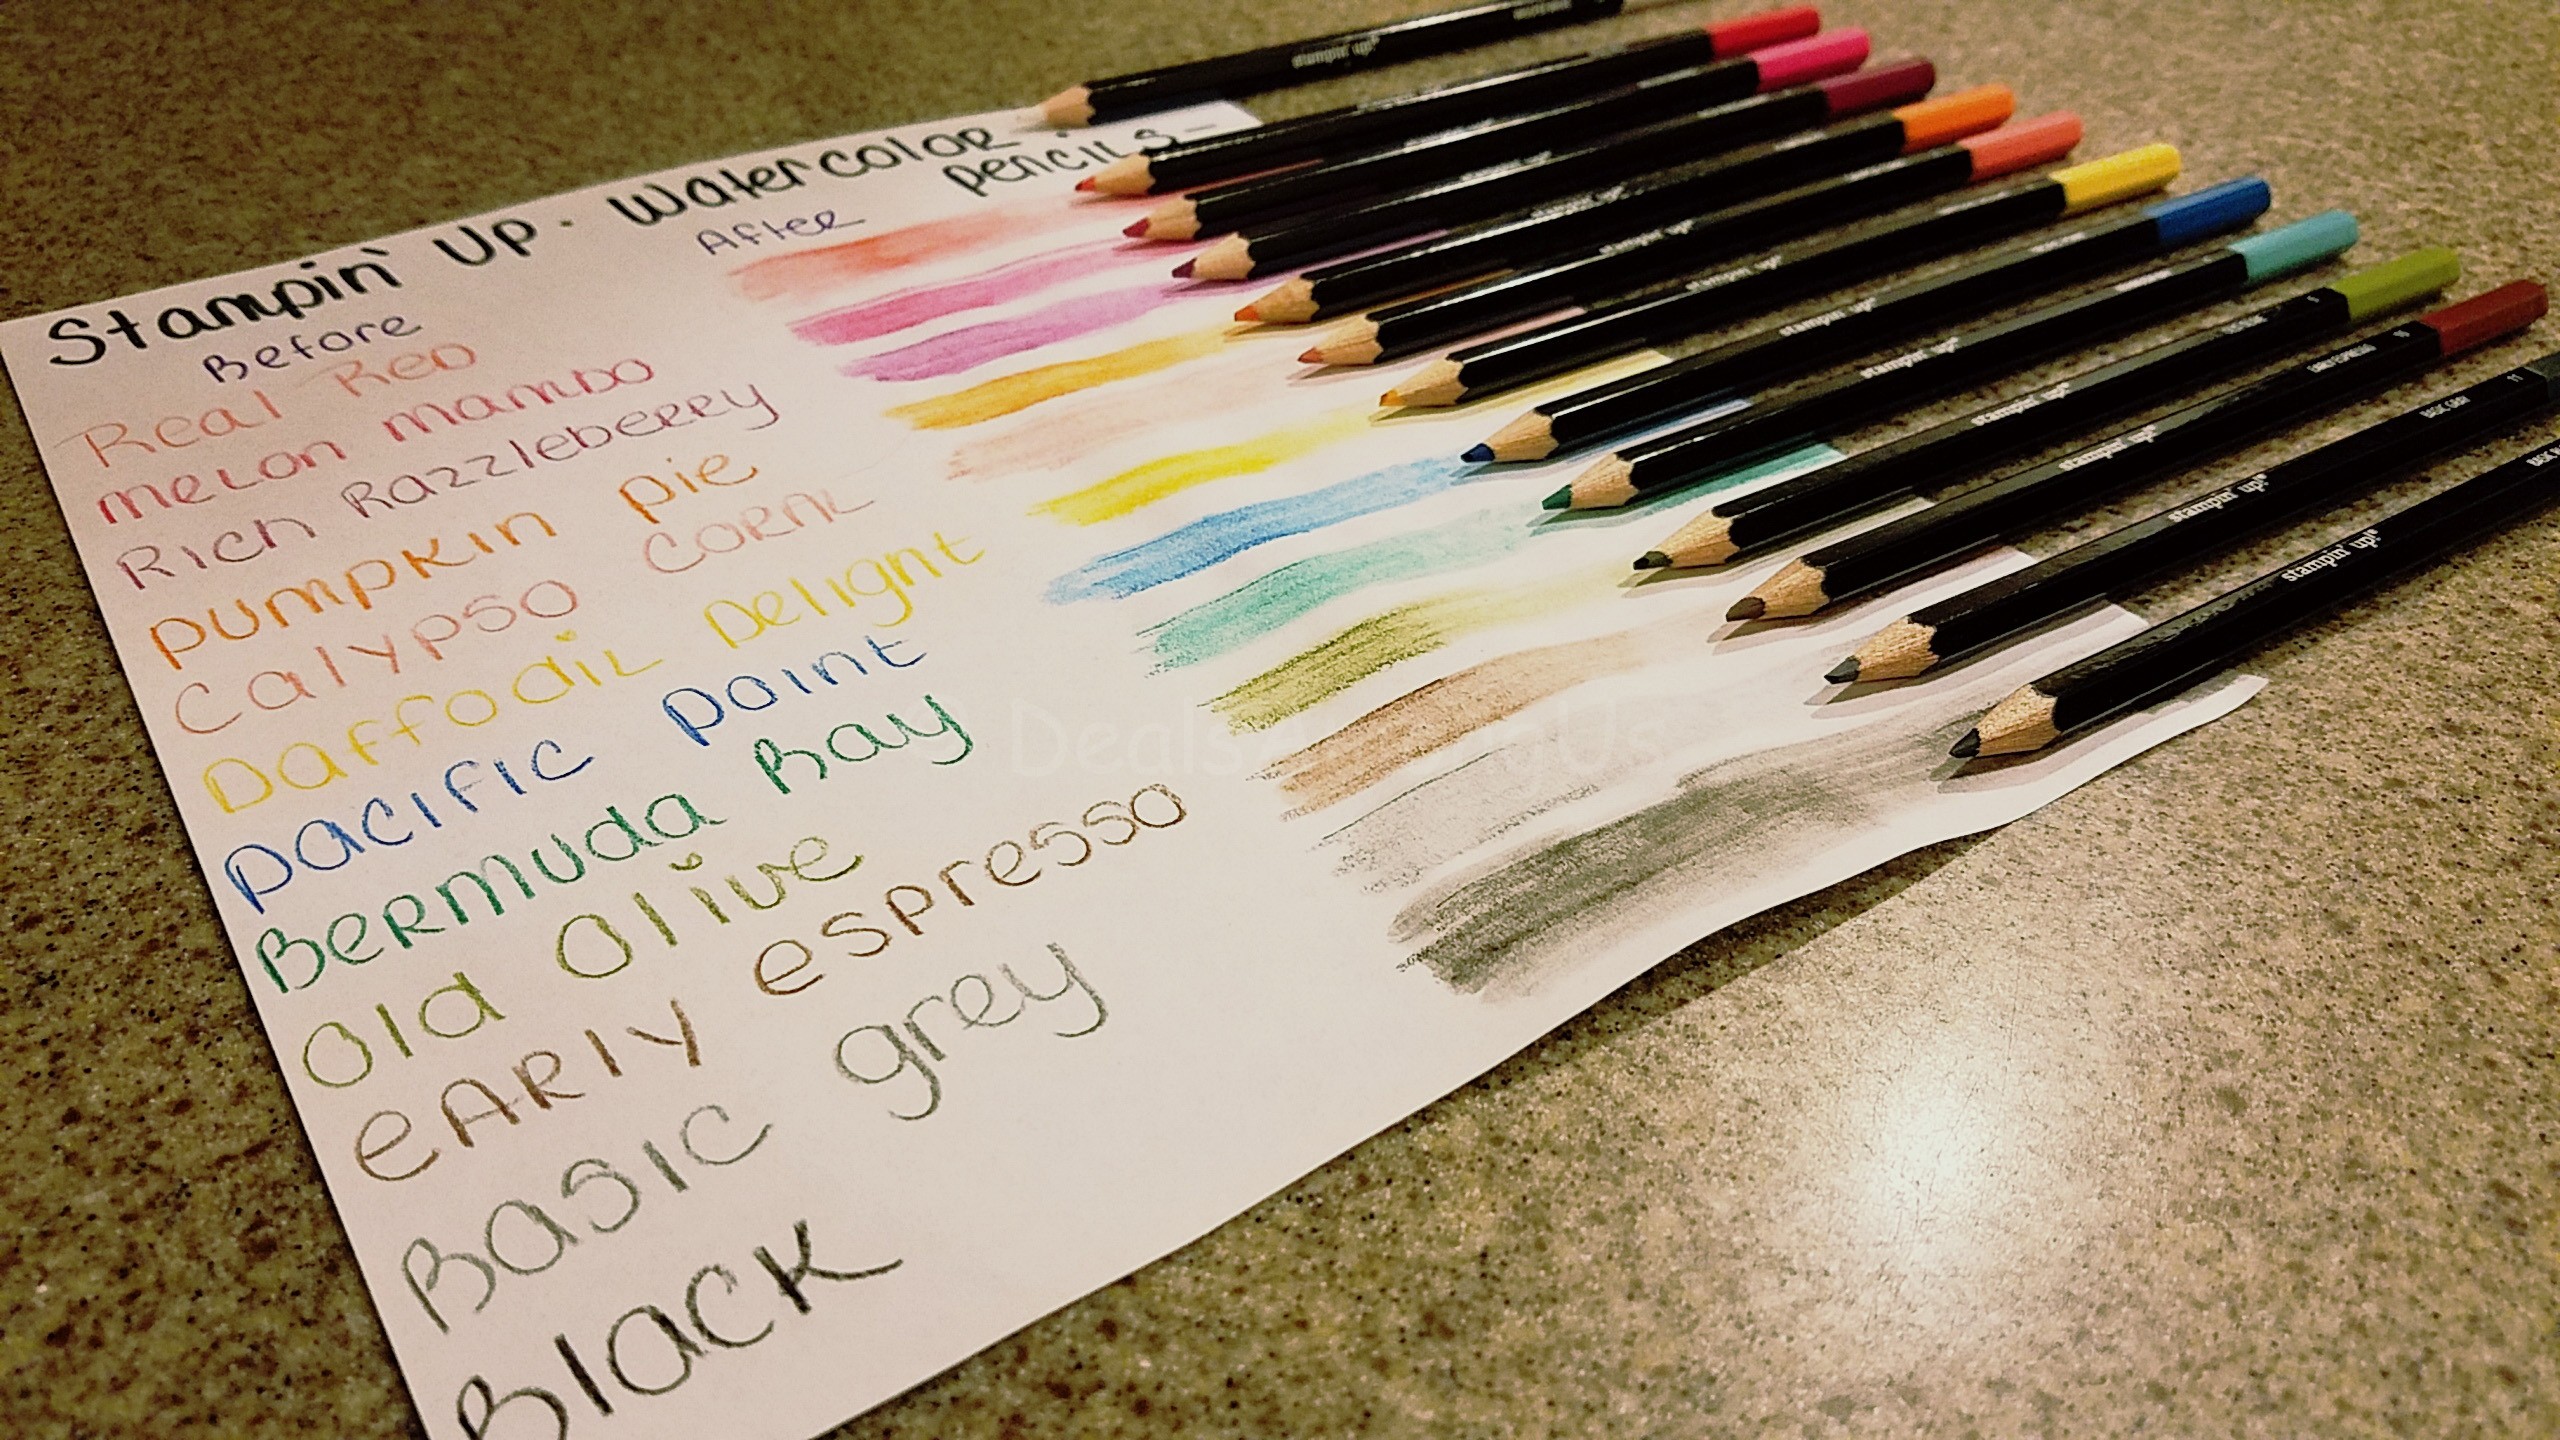 Stampin' Up · Watercolor
pencils-
Before
After
Real Red
Melon mambo
Rich Razzleberry
pumpkin pie
Calypso CORAL
Daffodil Delight
pacific point
Bermuda Bay
Old Olive
EARLY espresso
Basic grey
Black
stampin' up!®
stampin' up!®
stampin' up!®
stampin' up!®
stampin' up!®
stampin' up!®
stampin' up!®
stampin' up!®
EARLY ESPRESSO 10
stampin' up!®
BASIC GRAY 11
stampin' up!®
BASIC